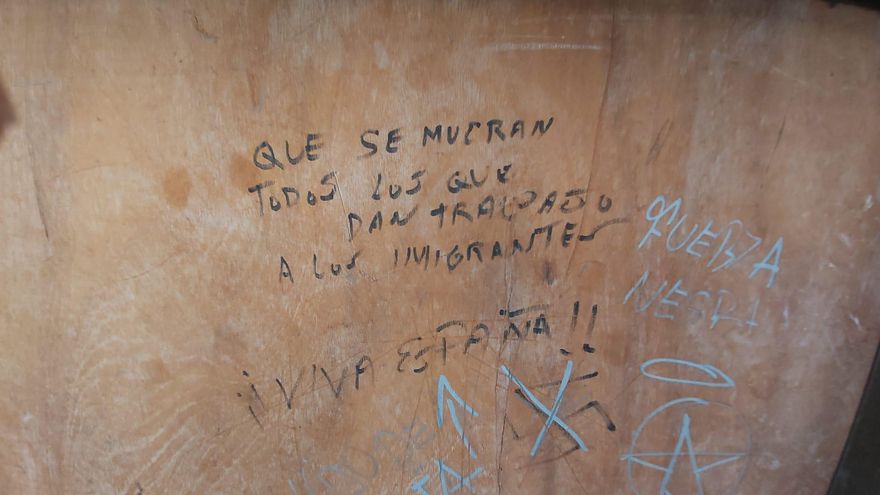 QUE SE MUERAN
TODOS LOS QUE
DAN TRABAJO
A LOS IMIGRANTES
¡¡VIVA ESPAÑA!!
FUERZA
NEGRA